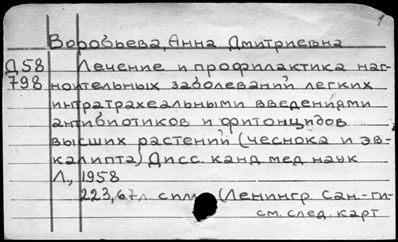 1
Воробьева, Анна Дмитриевна
Д58 Лечение и профилактика наг-
798 ноительных заболеваний легких
интратрахеальными введениями
антибиотиков и фитонцидов
высших растений (чеснока и эв-
калипта) Дисс. канд. мед наук
Л., 1958
223, 67л. (Ленингр. Сан.-ги-
см. след. карт